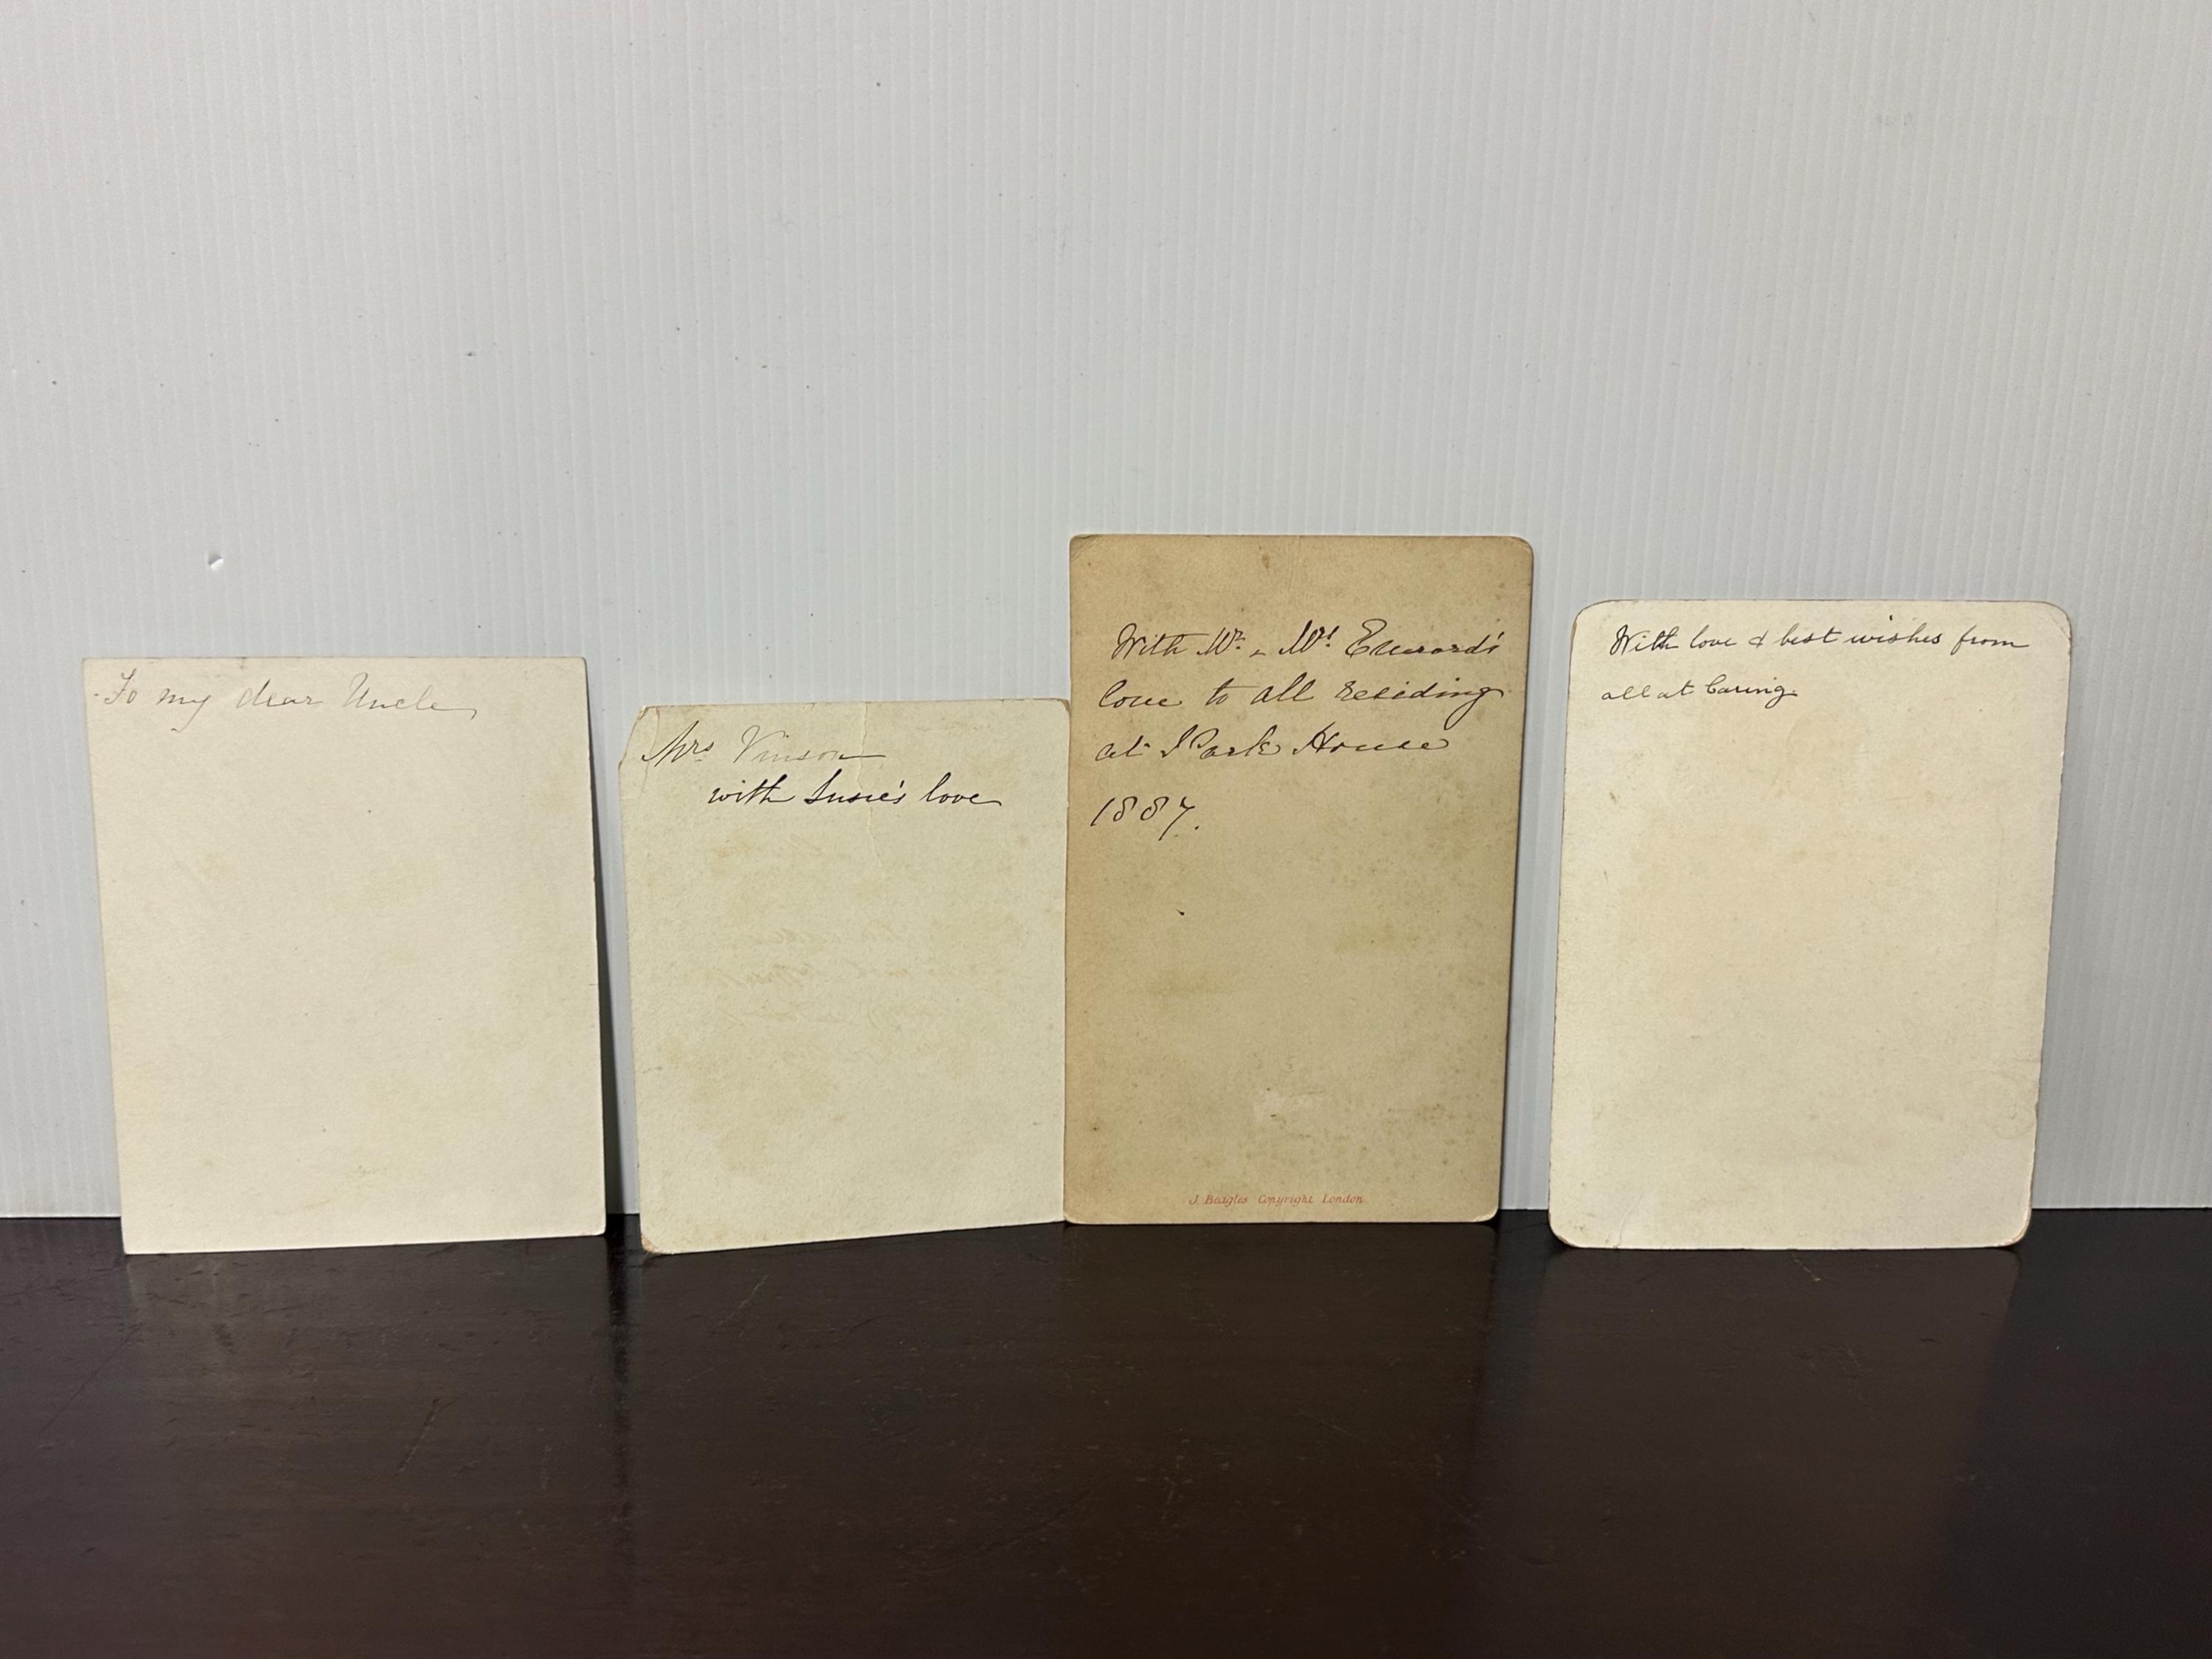 To my dear Uncle
Mrs Vinson
with Susie's love
With Mr. & Mrs Edward's
love to all residing
at Park House
1887.
J. Beagles Copyright London
With love & best wishes from
all at Caring